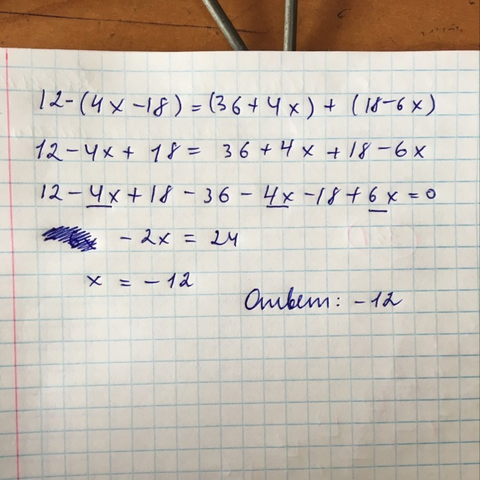 12-(4x-18)=(36+4x)+(18-6x)
12-4x+18=36+4x+18-6x
12-4x+18-36-4x-18+6x=0
-2x=24
x=-12
Ответ: -12